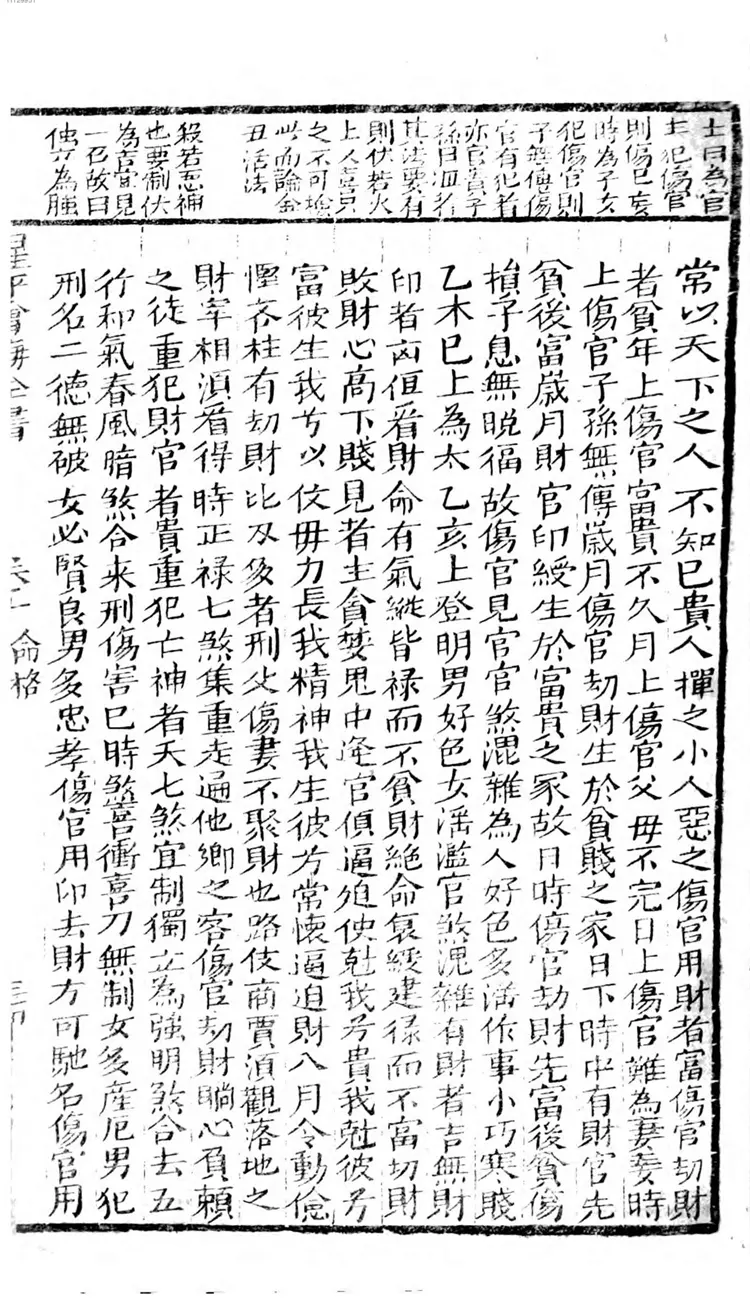 土日為官
主犯傷官
則傷巳亥
時為子女
犯傷官則
子無傳傷
官有犯者
亦官貴子
孫日沮於
其法要有
則伏若火
上人喜只
之不可執
此而論金
丑活法
殺若忌神
也要制伏
為吉宜見
一名故曰
值六為強
常以天下之人不知巳貴人揮之小人惡之傷官用財者富傷官刧財
者貧年上傷官富貴不久月上傷官父母不完日上傷官難為妻妾時
上傷官子孫無傳歲月傷官刧財生於貧賤之家日下時中有財官先
貧後富歲月財官印綬生於富貴之家故日時傷官刧財先富後貧傷
損子息無晚福故傷官見官官煞混雜為人好色多淫作事小巧寒賤
乙木巳上為太乙亥上登明男好色女淫濫官煞混雜有財者吉無財
印者凶值看財命有氣縱皆祿而不貧財絕命衰綬建祿而不富刧財
敗財心高下賤見者主貪婪鬼中逢官偵逼廹使尅我兮貴我尅彼兮
富彼生我兮以伩毋力長我精神我生彼方常懷逼迫財入月令動儉
慳吝柱有刧財比及多者刑父傷妻不聚財也路伎商賈湏觀落地之
財宰相湏看得時正祿七煞集重走遍他鄉之客傷官刧財瞞心負賴
之徒重犯財官者貴重犯亡神者夭七煞宜制獨立為強明煞合去五
行和氣春風暗煞合来刑傷害巳時煞喜衝喜刀無制女多産厄男犯
刑名二德無破女必賢良男多忠孝傷官用印去財方可馳名傷官用
星平會海全書
命格